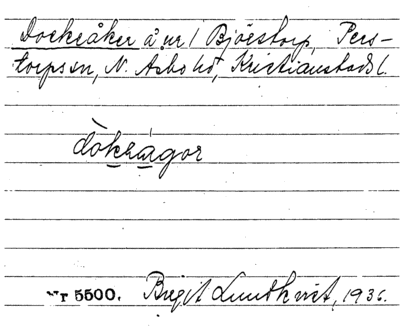 Dockeåker å nr 1 Bjöестorp, Pers-
torps sn, N. Åsbo hd, Kristianstads l.
dòkråger
Nr 5500. Birgit Lundkvist, 1936.